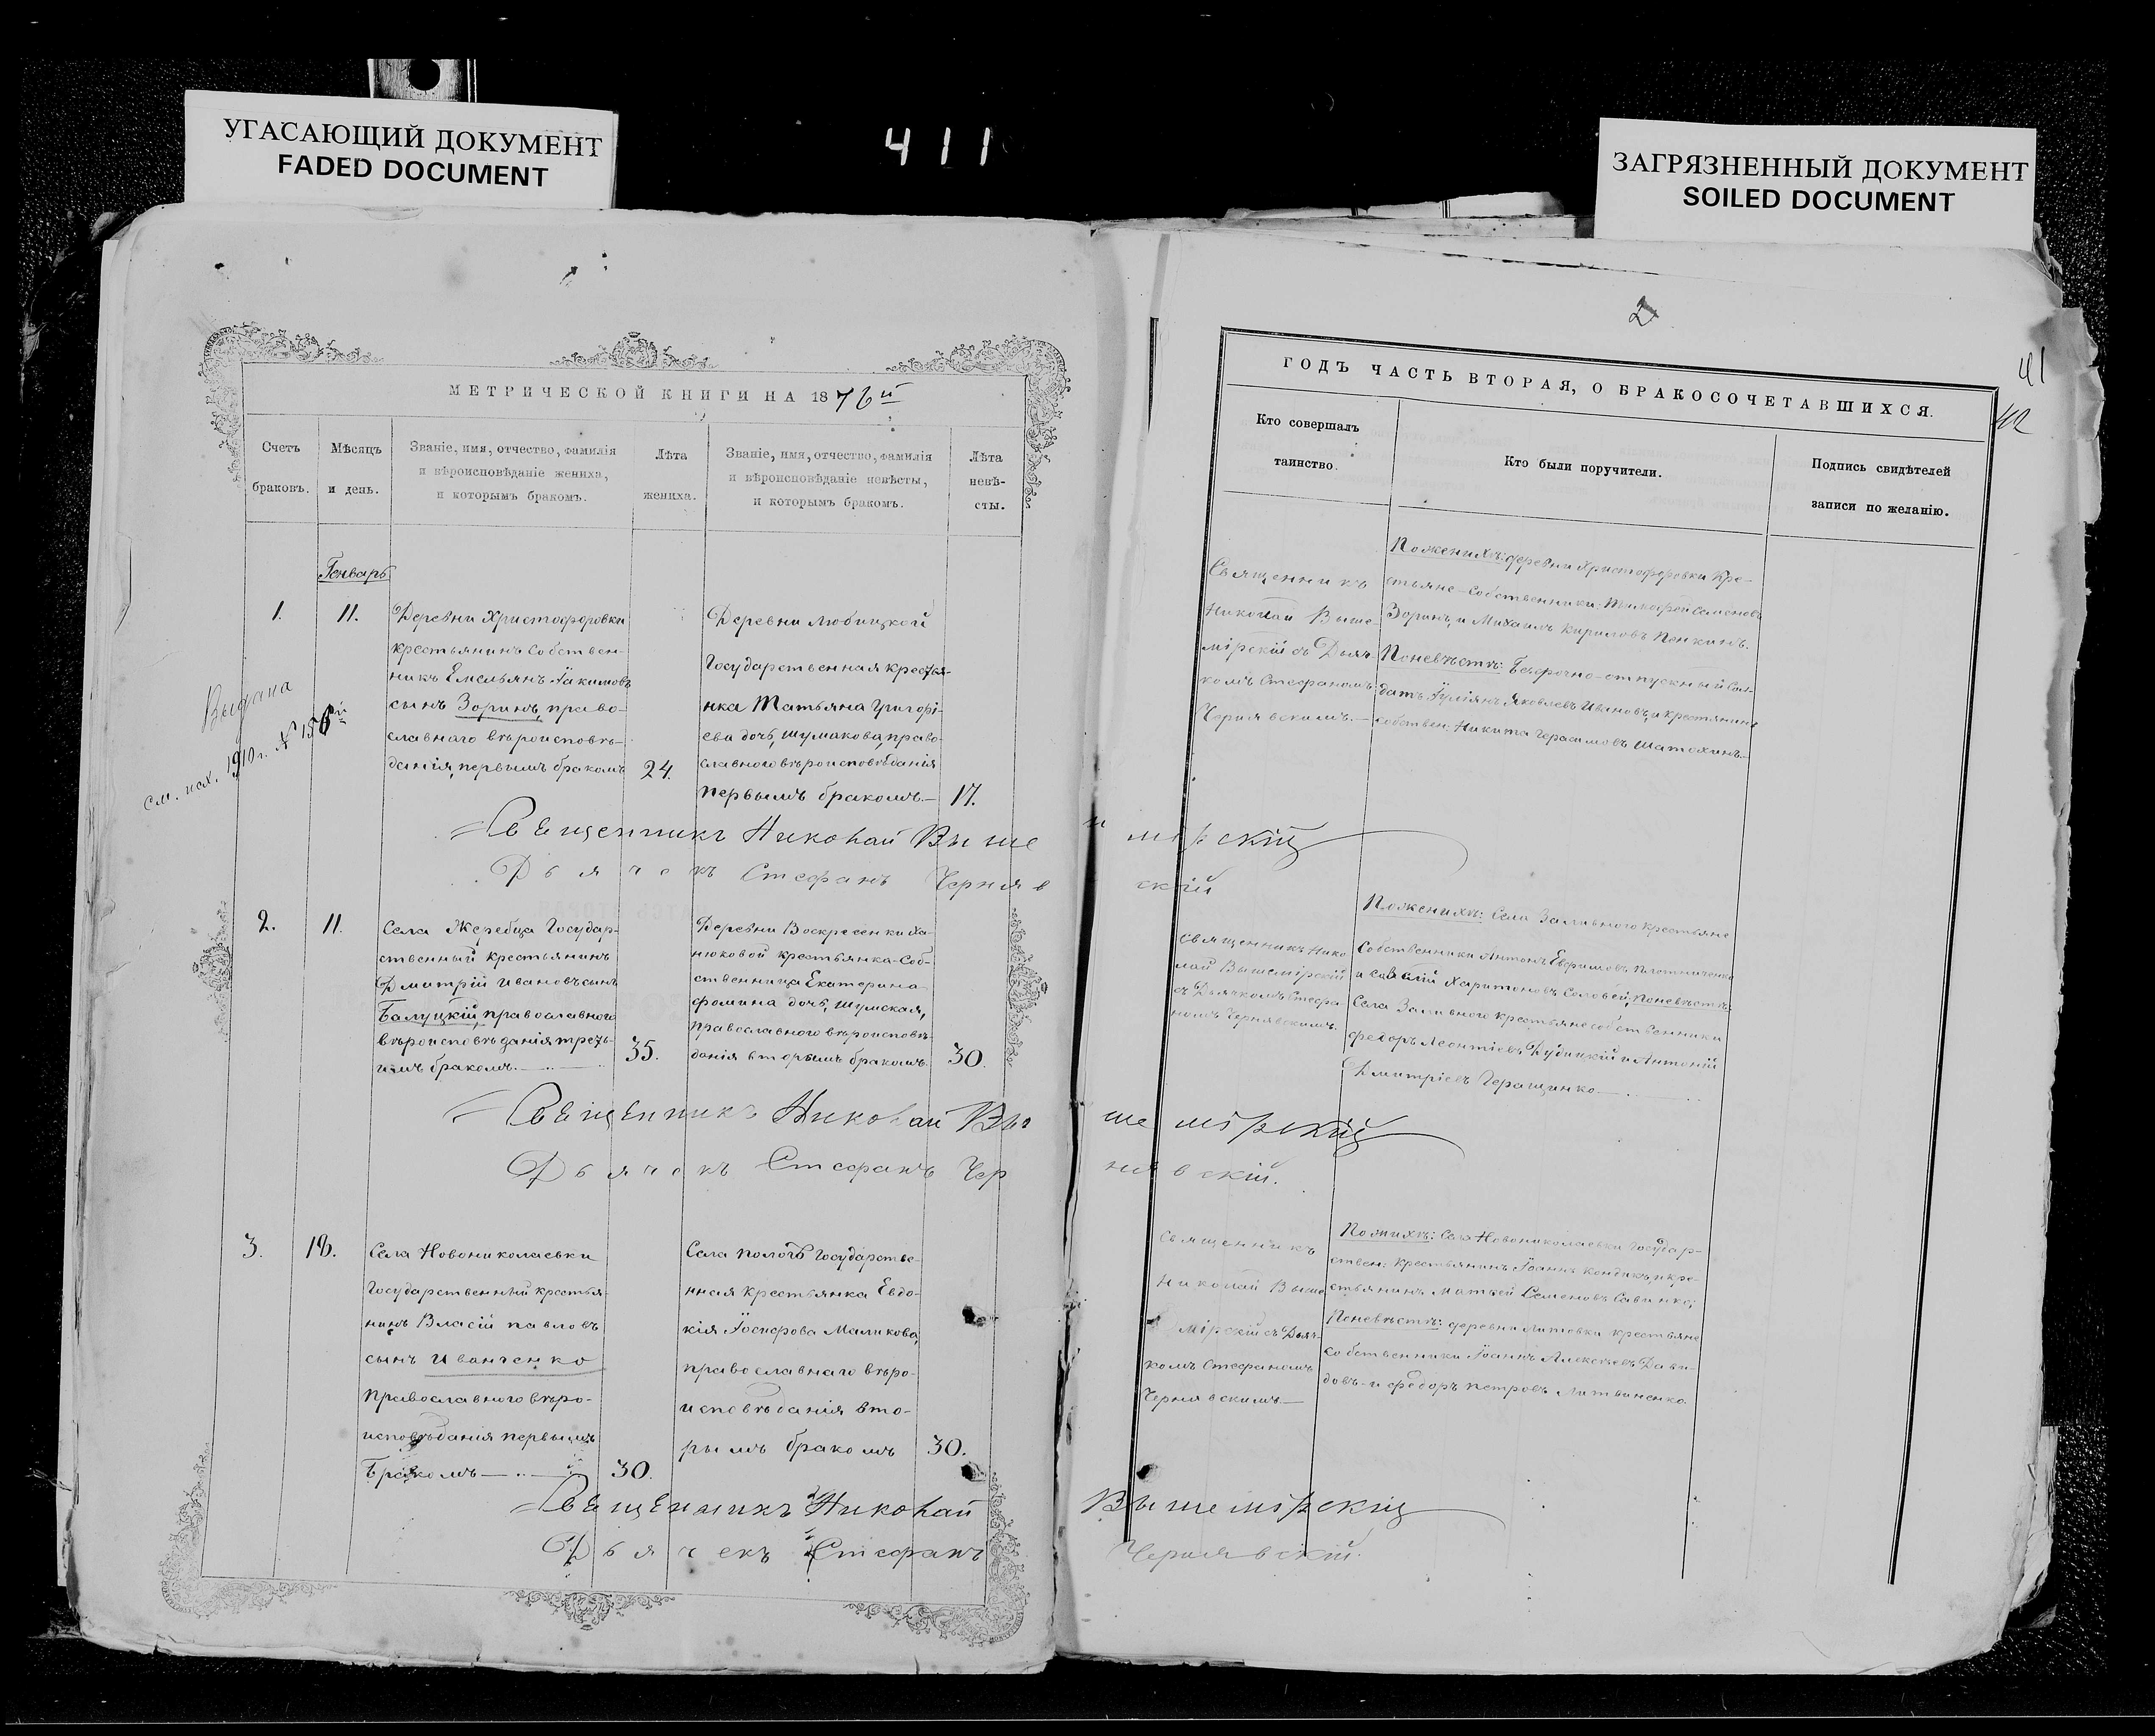 УГАСАЮЩИЙ ДОКУМЕНТ
FADED DOCUMENT
411
ЗАГРЯЗНЕННЫЙ ДОКУМЕНТ
SOILED DOCUMENT
МЕТРИЧЕСКОЙ КНИГИ НА 1876й
Счетъ
браковъ.
Мѣсяцъ
и день.
Званіе, имя, отчество, фамилія
и вѣроисповѣданіе жениха,
и которымъ бракомъ.
Лѣта
жениха.
Званіе, имя, отчество, фамилія
и вѣроисповѣданіе невѣсты,
и которымъ бракомъ.
Лѣта
невѣ-
сты.
Генварь
Выдана
см. исх. 1910 г. №
1.
11.
Деревни Христофоровки
крестьянинъ собствен-
никъ Емельянъ Іакимовъ
сынъ Зоринъ, право-
славнаго вѣроисповѣ-
данія, первымъ бракомъ
24.
Деревни Любицкой
Государственная крестья-
нка Татьяна Григорі-
ева дочь, Шумакова, право-
славного вѣроисповѣданія
первымъ бракомъ.—
17.
Священникъ Николай Вышемірскій
Дьячекъ Стефанъ Чернявскій
2.
11.
Села Жеребца Государ-
ственный крестьянинъ
Дмитрій Ивановъ сынъ
Балуцкій, православного
вѣроисповѣданія треть-
имъ бракомъ.
35.
Деревни Воскресенки Ха-
нюковой крестьянка-соб-
ственница Екатерина
Фомина дочь, Шумская,
православного вѣроисповѣ-
данія вторымъ бракомъ.
30.
Священникъ Николай Вышемірскій
Дьячекъ Стефанъ Чернявскій.
3.
18.
Села Новониколаевки
Государственный крестья-
нинъ Власій Павловъ
сынъ Иванченко
православного вѣро-
исповѣданія первымъ
бракомъ
30.
Села Пологъ Государстве-
нная крестьянка Евдо-
кія Іосифова Маликова,
православнаго вѣро-
исповѣданія вто-
рымъ бракомъ
30.
Священникъ Николай Вышемірскій
Дьячекъ Стефанъ Чернявскій.
2
41
42
ГОДЪ ЧАСТЬ ВТОРАЯ, О БРАКОСОЧЕТАВШИХСЯ.
Кто совершалъ
таинство.
Кто были поручители.
Подпись свидѣтелей
записи по желанію.
Священникъ
Николай Выше-
мірскій съ Дьяч-
комъ Стефаномъ
Чернявскимъ.—
По женихѣ: деревни Христофоровки Кре-
стьяне-собственники: Тимофей Семеновъ
Зоринъ, и Михаилъ Кириловъ Пенкинъ.
По невѣстѣ: Безсрочно-отпускный Сол-
датъ Іуліянъ Яковлевъ Ивановъ, и крестянине
собствен: Никита Герасимовъ Шатохинъ.
Священникъ Нико-
лай Вышемірскій
съ Дьячкомъ Стефа-
номъ Чернявскимъ.
По женихѣ: Села Заливного крестьяне
Собственники Антонъ Ефримовъ Плотниченко
и Харитоновъ Соловей; По невѣстѣ:
Села Заливного крестьяне собственники
Федоръ Леонтіевъ Дудицкій и Антоній
Дмитріевъ Геращинко
Священникъ
Николай Выше
мірскій съ Дьяч-
комъ Стефаномъ
Чернявскимъ.—
По жихѣ: Села Новониколаевки Государ-
ствен: крестьянинъ Іоаннъ Кондикъ, и кре-
стьянинъ Матвей Семеновъ Савинко;
По невѣстѣ: деревни Литовки крестьяне
собственники Іоаннъ Алексѣевъ Дави-
довъ и Федоръ Петровъ Литвиненко.